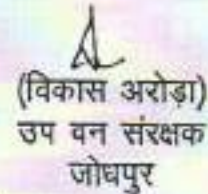 (विकास अरोड़ा)
उप वन संरक्षक
जोधपुर